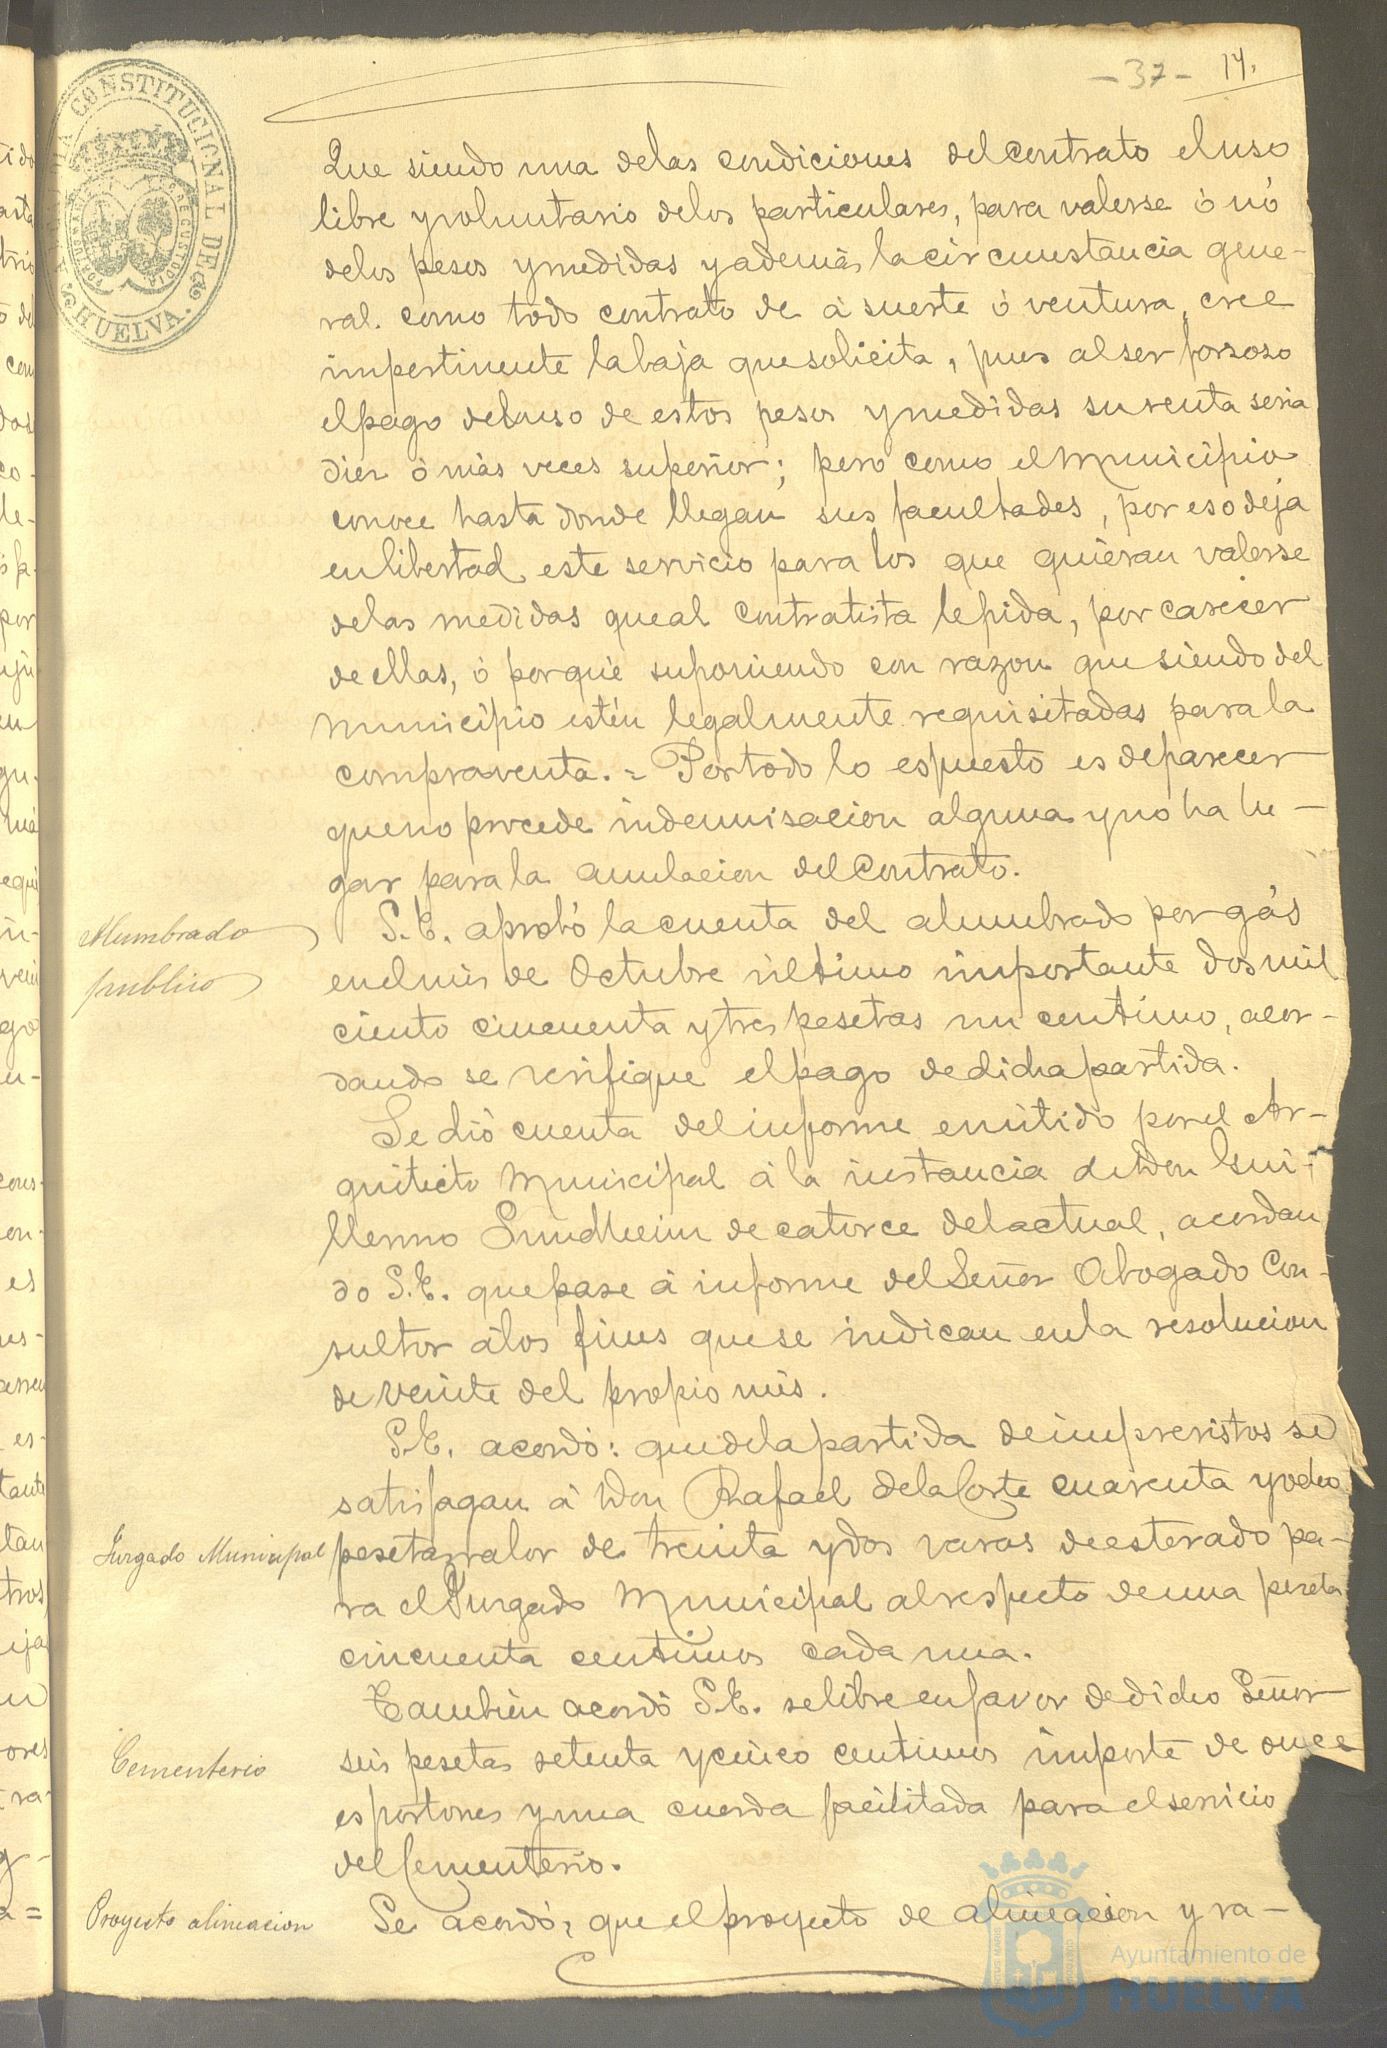 - 37 - 14.
Que siendo una delas condiciones delcontrato eluso
libre yvoluntario delos particulares, para valerse ó nó
delos pesos ymedidas yademás lacircunstancia gene-
ral. como todo contrato de á suerte ó ventura, cree
impertinente labaja quesolicita, pues alser forsoso
elpago deluso de estos pesos ymedidas surenta seria
diez ó más veces superior; pero como elMunicipio
conoce hasta donde llegan sus facultades, por eso deja
enlibertad este servicio para los que quieran valerse
delas medidas queal contratista lepida, por carecer
de ellas, ó porque suponiendo con razon que siendo del
Municipio estén legalmente requisitadas parala
compraventa. = Portodo lo espuesto es deparecer
queno procede indemnisacion alguna yno ha lu-
gar parala anulacion delContrato.
Alumbrado
publico
S.E. aprobó lacuenta del alumbrado porgás
enelmes de Octubre último importante dosmil
ciento cincuenta ytres pesetas un centimo, acor-
dando se verifique elpago dedichapartida.
Se dió cuenta delinforme emitido porel Ar-
quitecto Municipal á la instancia deDon Gui-
llermo Sundheim de catorce delactual, acordan
do S.E. quepase á informe delSeñor Abogado Con-
sultor álos fines quese indican enla resolucion
de veinte del propio mes.
S.E. acordó: quedelapartida deimprevistos se
satisfagan á Don Rafael delaCorte cuarenta yocho
Jurgado Municipal
pesetas valor de treinta ydos varas deesterado pa-
ra elJurgado Municipal alrespecto deuna peseta
cincuenta centimos cada una.
Tambien acordó S.E. selibre enfavor dedicho Señor
Cementerio
seis pesetas setenta ycinco centimos importe de once
esportones yuna cuerda facilitada para elservicio
delCementerio.
Proyecto alineacion
Se acordó, que elproyecto de alineacion y ra-
AYUNTAMIENTO CONSTITUCIONAL DE HUELVA.
Ayuntamiento de
HUELVA